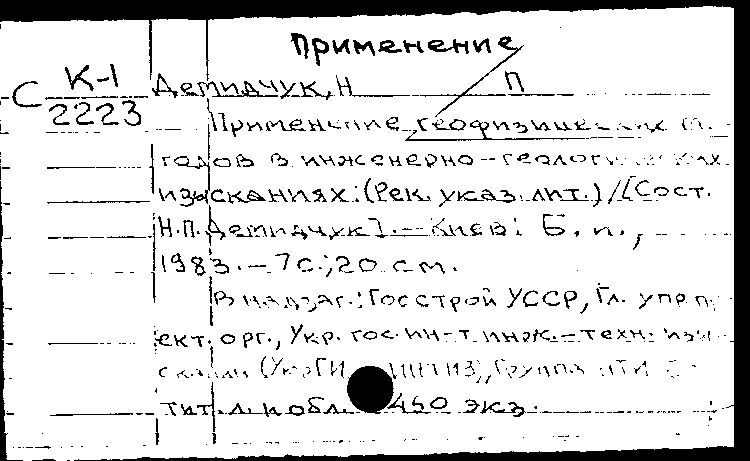 Применение
С К-1
2223
Демидчук, Н П
Применение геофизических м.
тодов в инженерно-геологических
изысканиях: (Рек. указ. лит.) / [Сост.
Н.П. Демидчук]. — Киев: Б. и.,
1983. — 7 с.; 20 см.
В надзаг.: Госстрой УССР, Гл. упр. п
ект. орг., Укр. гос. ин-т инж.-техн. изы
сканий (УкрГИ ИНТИЗ), Группа НТИ
тит. л. и обл. 450 экз.